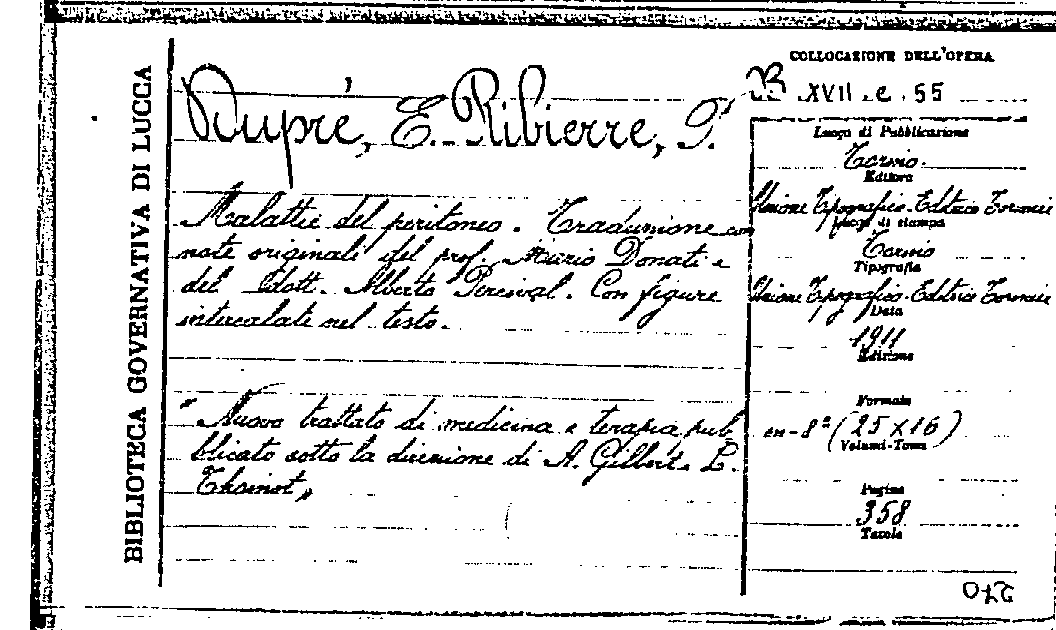 BIBLIOTECA GOVERNATIVA DI LUCCA
Dupré, E. Ribierre, P.
Malattie del peritoneo. Traduzione con
note originali del prof. Mario Donati e
del Dott. Alberto Percival. Con figure
intercalate nel testo.
"Nuovo trattato di medicina e terapia pub
blicato sotto la direzione di A. Gilbert e L.
Thoinot"
COLLOCAZIONE DELL'OPERA
B. XVII. e. 55
Luogo di Pubblicazione
Torino.
Editore
Unione Tipografico-Editrice Torinese
Luogo di stampa
Torino
Tipografia
Unione Tipografico-Editrice Torinese
Data
1911
Edizione
Formato
in-8° (25x16)
Volumi-Tomo
Pagine
358
Tavole
270